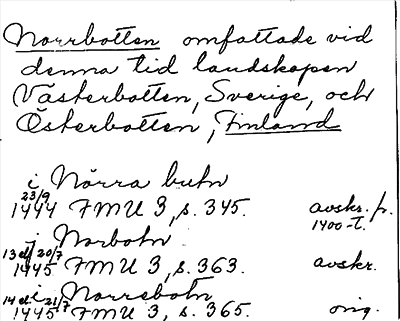 Norrbotten omfattade vid
denna tid landskapen
Västerbotten, Sverige, och
Österbotten, Finland
i Nórra butn
23/9
1444 FMU 3, s. 345. avskr. fr. 1400-t.
i Norbotn
13 el. 20/7
1445 FMU 3, s. 363. avskr.
i Norrebotn
14 el. 21/7
1445 FMU 3, s. 365. orig.